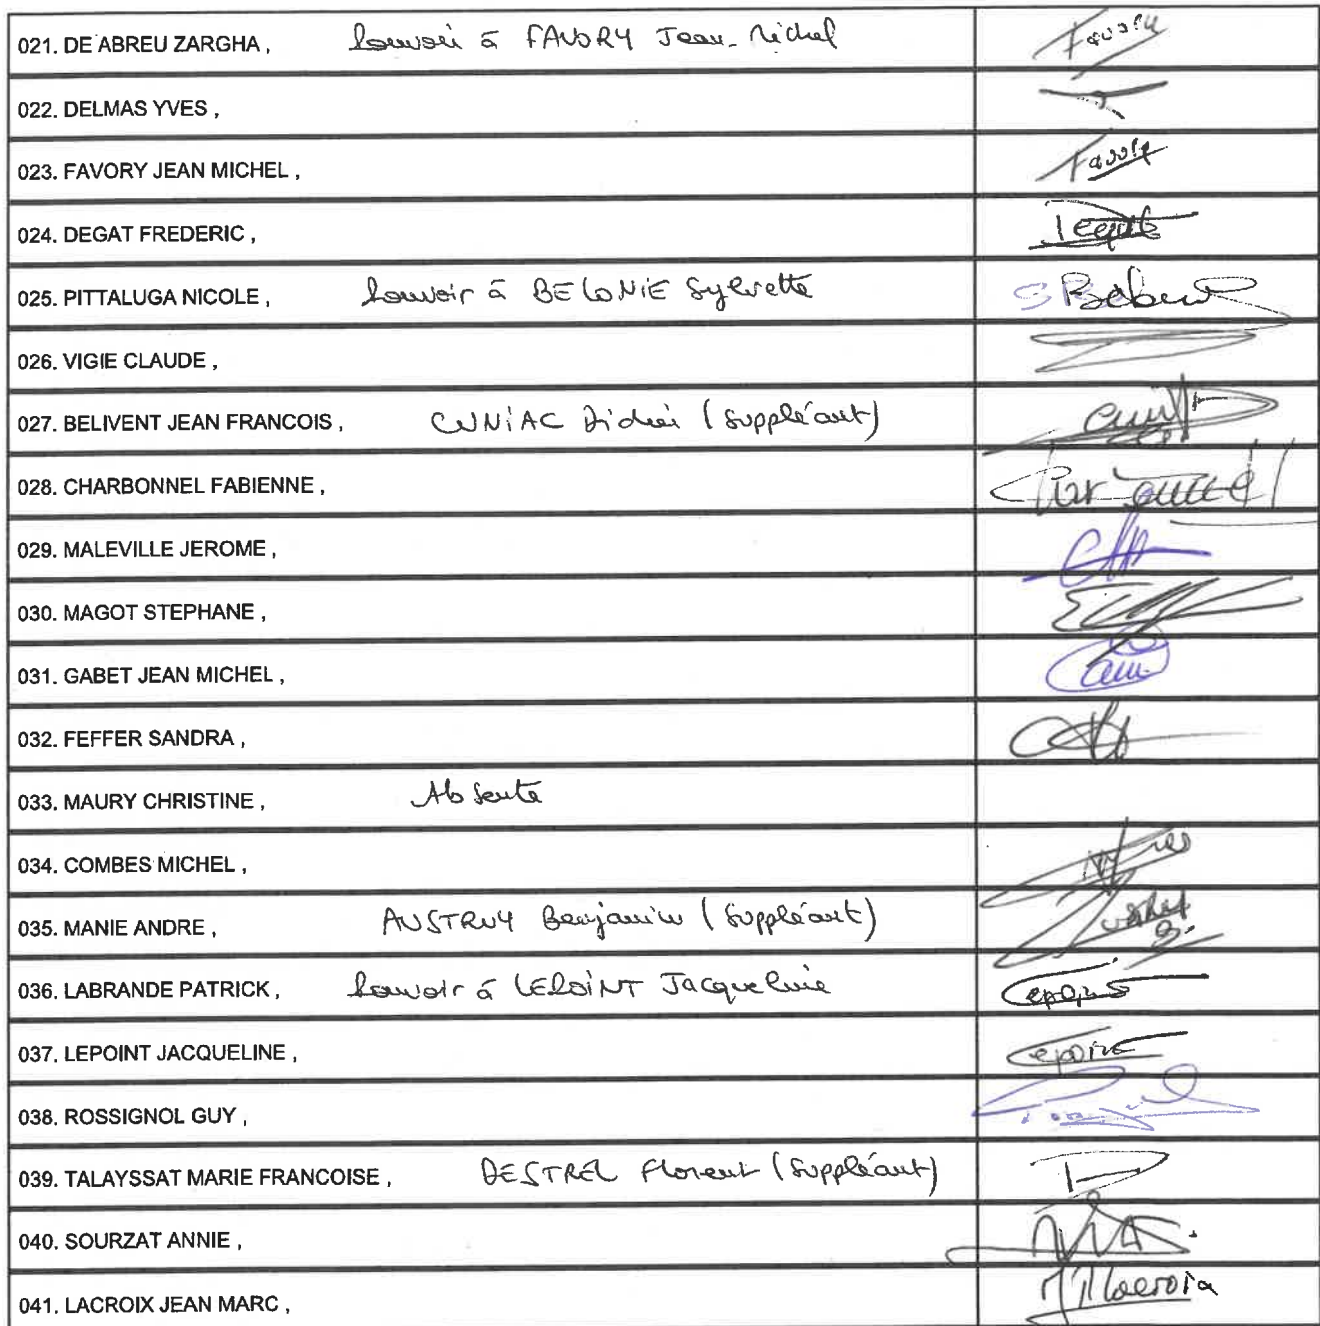 021. DE ABREU ZARGHA , Pouvoir à FAVORY Jean-Michel Favory
022. DELMAS YVES ,
023. FAVORY JEAN MICHEL , Favory
024. DEGAT FREDERIC , Degat
025. PITTALUGA NICOLE , Pouvoir à BELONIE Sylvette
026. VIGIE CLAUDE ,
027. BELIVENT JEAN FRANCOIS , CUNIAC Didier (Suppléant)
028. CHARBONNEL FABIENNE , Charbonnel
029. MALEVILLE JEROME ,
030. MAGOT STEPHANE ,
031. GABET JEAN MICHEL ,
032. FEFFER SANDRA ,
033. MAURY CHRISTINE , Absente
034. COMBES MICHEL ,
035. MANIE ANDRE , AUSTRUY Benjamin (Suppléant)
036. LABRANDE PATRICK , Pouvoir à LEPOINT Jacqueline Lepoint
037. LEPOINT JACQUELINE , Lepoint
038. ROSSIGNOL GUY ,
039. TALAYSSAT MARIE FRANCOISE , DESTREL Florent (Suppléant)
040. SOURZAT ANNIE ,
041. LACROIX JEAN MARC , JMLacroix